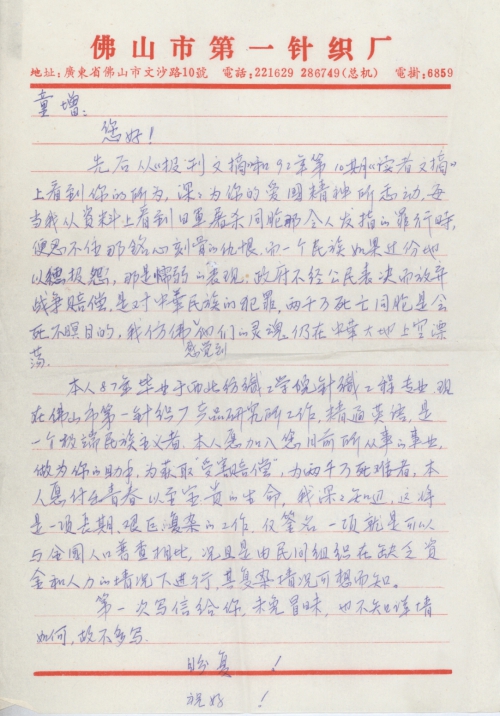 佛山市第一针织厂
地址:廣東省佛山市文沙路10號 電話:221629 286749(总机) 電掛:6859
童增:
您好!
先后从《报刊文摘》和92年第10期《读者文摘》
上看到你的所为,深深为你的爱国精神所感动,每
当我从资料上看到日军屠杀同胞那令人发指的罪行时,
便忍不住那铭心刻骨的仇恨.而一个民族如果过份地
以德报怨,那是懦弱的表现;政府不经公民表决而放弃
战争赔偿,是对中華民族的犯罪,两千万死亡同胞是会
死不瞑目的,我仿佛感觉到他们的灵魂仍在中華大地上空漂
荡.
本人87年毕业于西北纺織工学院针織工程专业,现
在佛山市第一针织厂产品研究所工作,精通英语,是
一个极端民族主义者.本人愿加入您目前所从事的事业,
做为你的助手,为获取"受害赔偿",为两千万死难者,本
人愿付出青春以至宝贵的生命,我深深知道,这将
是一项长期、艰巨、复杂的工作.仅签名一项就是可以
与全国人口普查相比,况且是由民间组织在缺乏资
金和人力的情况下进行,其复杂情况可想而知.
第一次写信给你,未免冒昧,也不知详情
如何,故不多写.
盼复!
祝好!